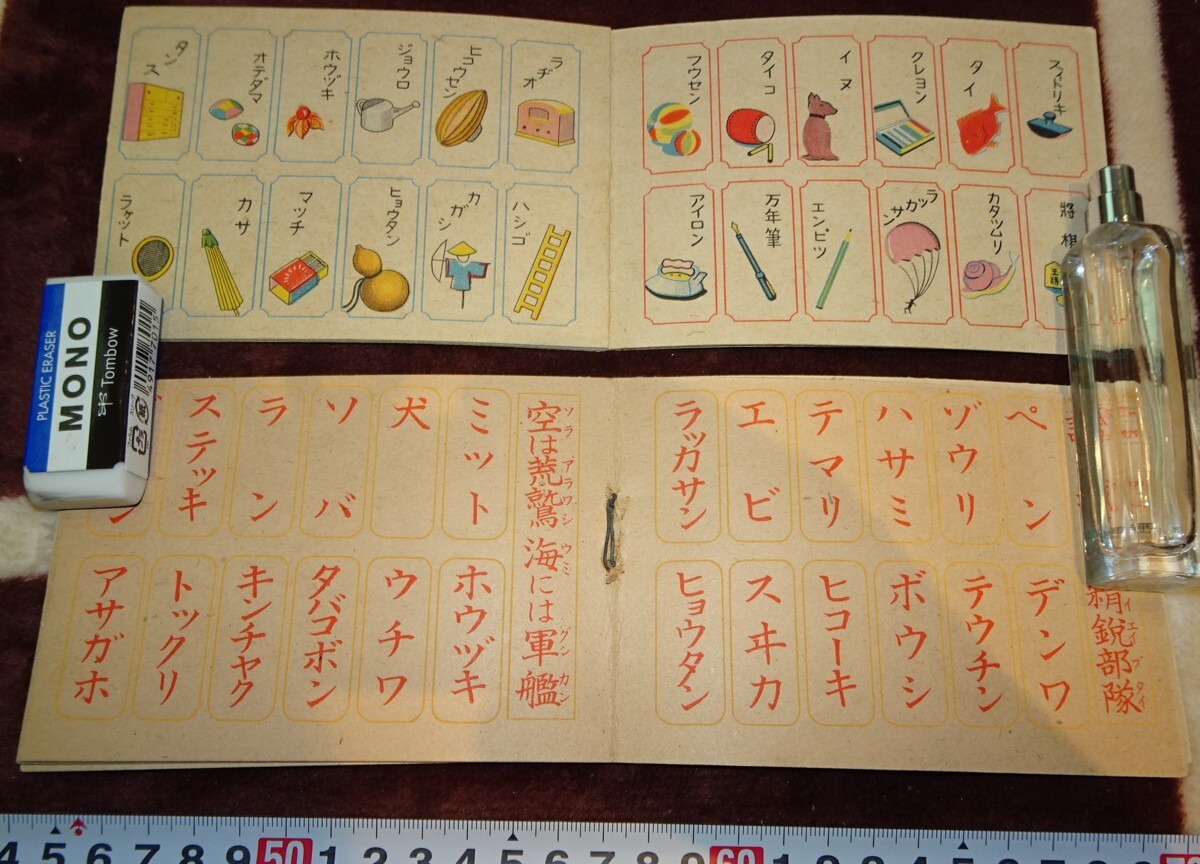 スイトリキ
タイ
クレヨン
イヌ
タイコ
フウセン
ラヂオ
ヒコウセン
ジョウロ
ホウヅキ
オテダマ
タンス
將棋
カタツムリ
ラッカサン
エンピツ
万年筆
アイロン
ハシゴ
カガシ
ヒョウタン
マッチ
カサ
ラケット
PLASTIC ERASER
MONO
Tombow
精鋭部隊
エイブタイ
ペン
ゾウリ
ハサミ
テマリ
エビ
ラッガサン
デンワ
テウチン
ボウシ
ヒコーキ
スヰカ
ヒョウタン
空は荒鷲 海には軍艦
ソラ アラワシ ウミ グンカン
ミット
犬
ソバ
ラン
ステッキ
ン
ホウヅキ
ウチワ
タバコボン
キンチャク
トックリ
アサガホ
4 5 6 7 8 9 50 1 2 3 4 5 6 7 8 9 60 1 2 3 4 5 6 7 8